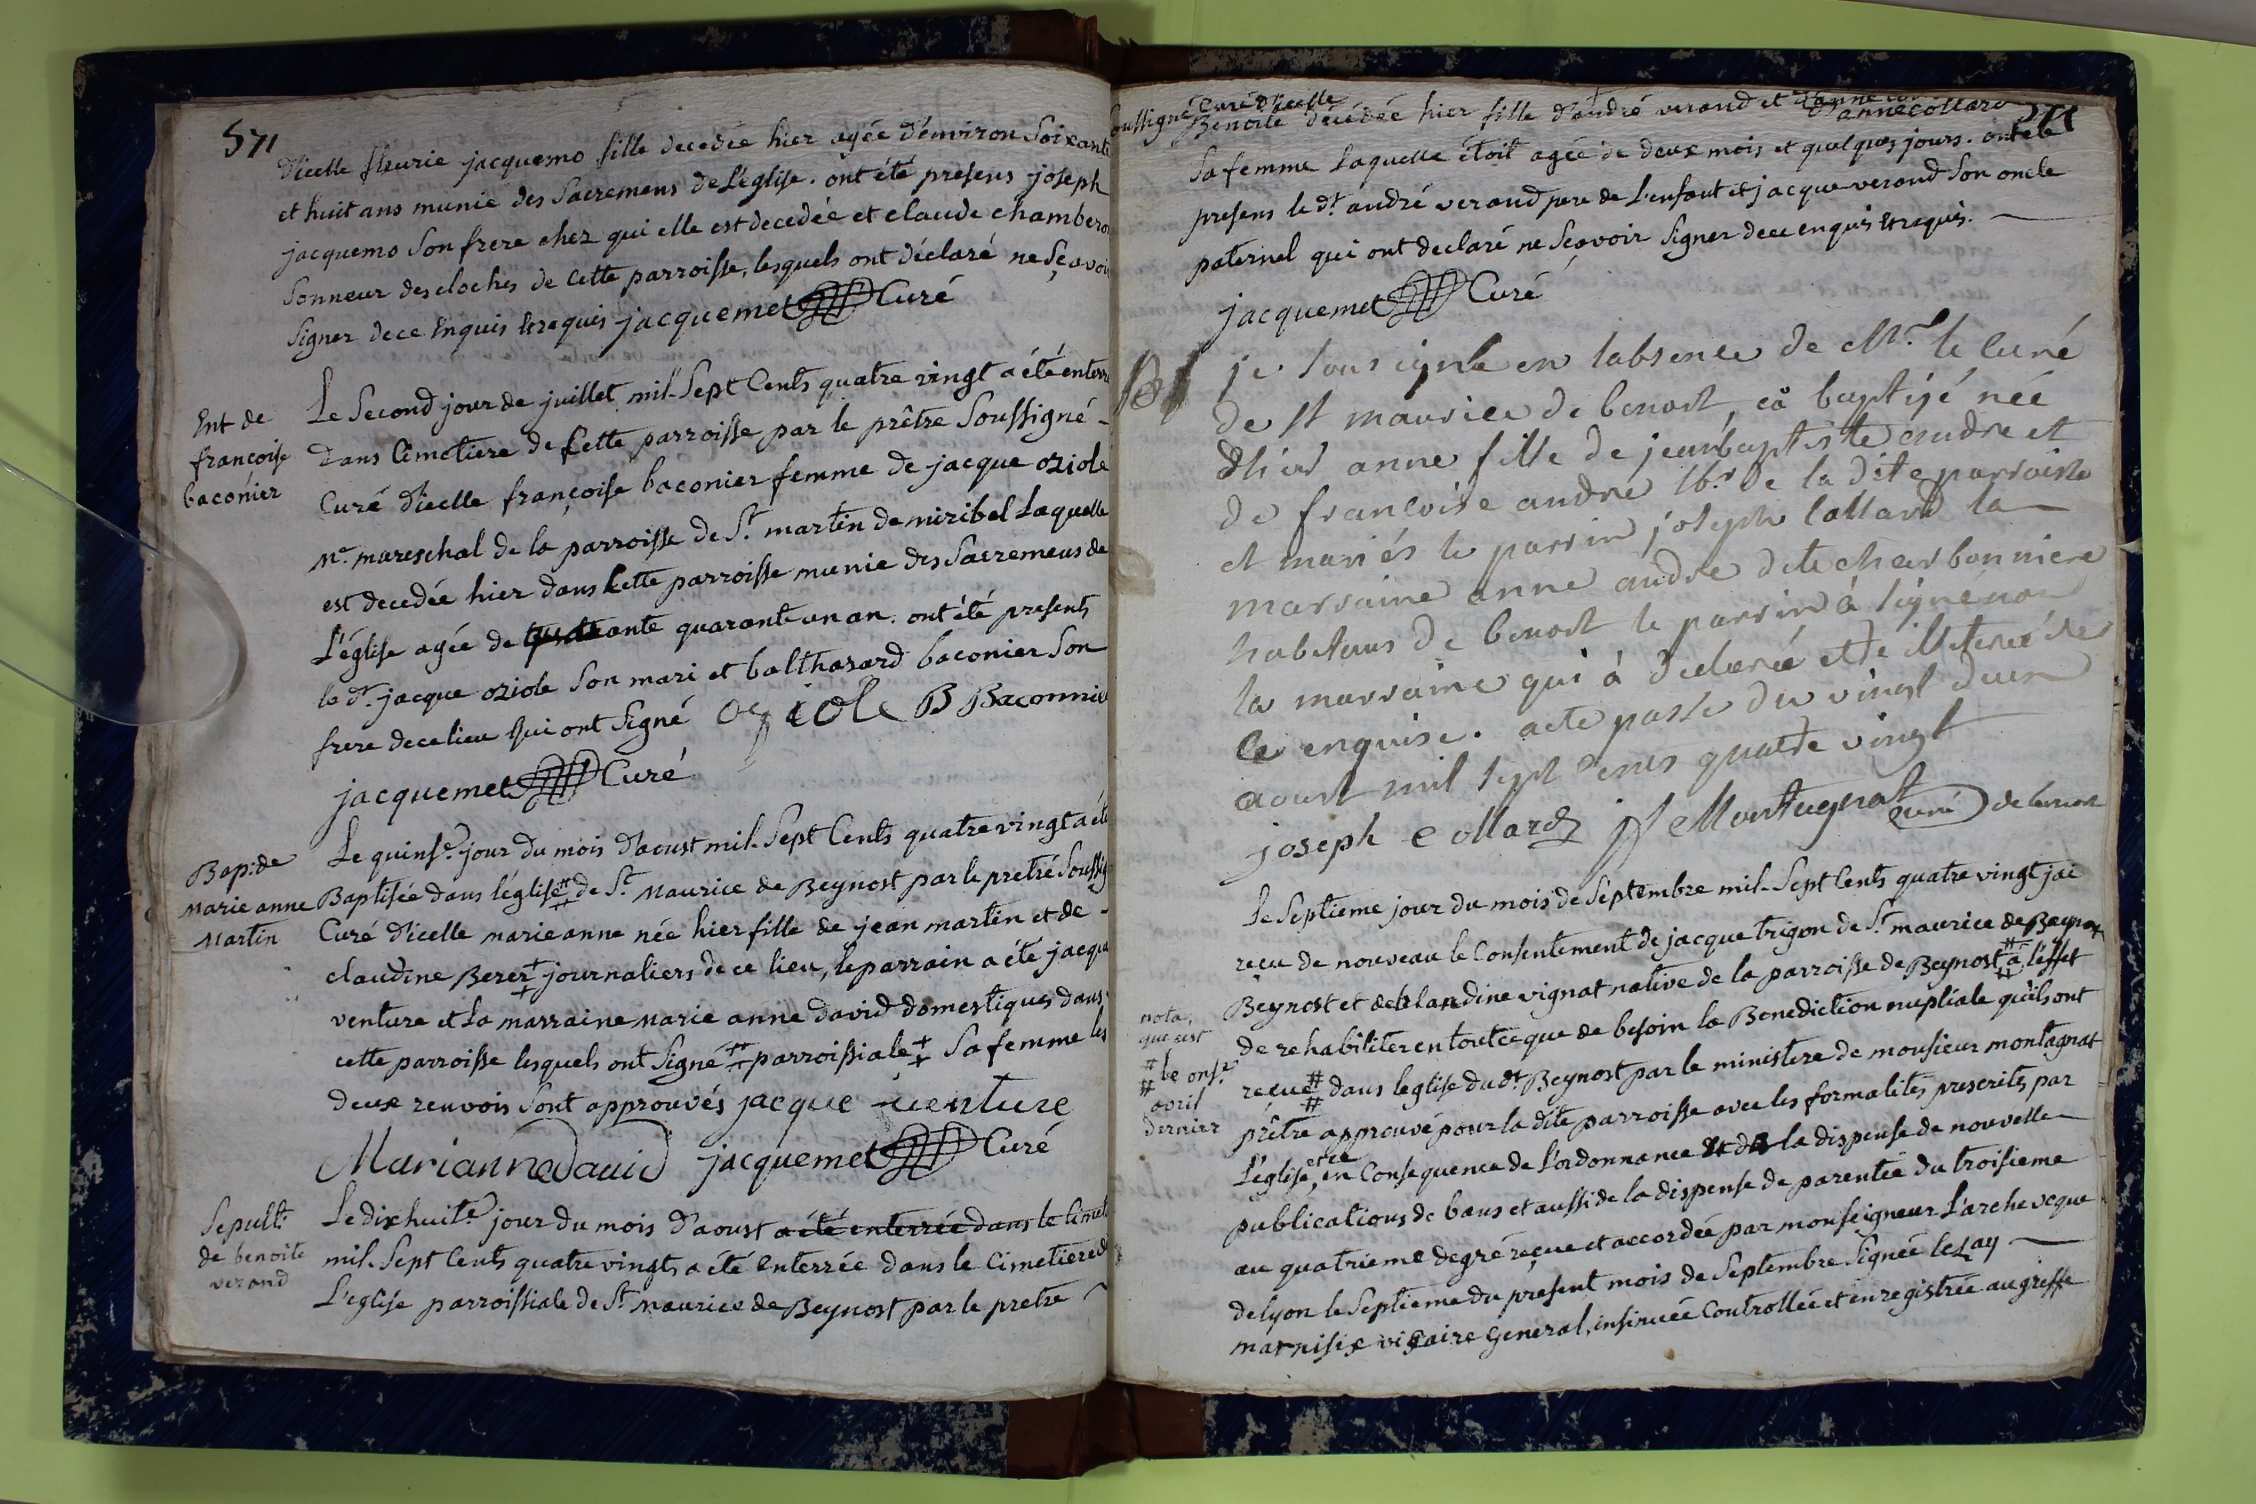 571
d'icelle fleurie jacquemo fille decedée hier agée d'environ Soixante
et huit ans munie des Sacremens de L'église. ont été presens joseph
jacquemo Son frere chez qui elle est decedée et claude chambero
Sonneur des cloches de cette parroisse, lesquels ont déclaré ne Sçavoi
Signer de ce Enquis Et requis jacquemet Curé
Ent de
françoise
baconier
Le Second jour de juillet mil Sept Cents quatre vingt a été enterr
dans Cimetiere de Cette parroisse par le prêtre Soussigné
Curé d'icelle françoise baconier femme de jacque oziole
Me. mareschal de la parroisse de St. martin de miribel Laquelle
est decedée hier dans Cette parroisse munie des Sacremens de
L'église agée de quarante un an. ont été presents
le dt. jacque oziole Son mari et balthazard baconier Son
frere de ce lieu Qui ont Signé oziole B Baconnie
jacquemet Curé
Bap: de
Marie anne
Martin
Le quinse. jour du mois d'aoust mil Sept Cents quatre vingt a été
Baptisée dans l'église # de St. Maurice de Beynost par le pretre Soussig
Curé d'icelle marie anne née hier fille de jean martin et de
claudine Berer + journaliers de ce lieu, le parrain a été jacque
venture et La marraine Marie anne david domestiques dans
cette parroisse lesquels ont Signé # parroissiale + Sa femme les
deux renvois Sont approuvés jacque venture
Marianne david jacquemet Curé
Sepult:
de benoite
verand
Le dix huite. jour du mois d'aoust a été enterrée dans le Cimet
mil Sept Cents quatre vingts a été Enterrée dans le Cimetiere d
L'eglise parroissiale de St. Maurice de Beynost par le pretre
oussigné Curé d'icelle
Benoite décédée hier fille d'andré verand et d'anne collard
571
Sa femme Laquelle étoit agée de deux mois et quelques jours. ont été
presens le dt. andré verand pere de L'enfant et jacque verand Son oncle
paternel qui ont declaré ne Sçavoir Signer de ce enquis Et requis.
jacquemet Curé
je sousigné en labsence de Mr. le Curé
de st maurice de benost, ai baptizé née
d'hier anne fille de jean baptiste andre et
de francoise andré de la dite parroisse
et mariés le parrin joseph collard la
marraine anne andre dite charbonniere
habitans de benost le parrin à signé non
la marraine qui à declarée etre illeterée de
ce enquise. acte passe du vingt deux
aoust mil sept cens quatre vingt
joseph collard Montagnat curé de benost
Le Septieme jour du mois de Septembre mil Sept Cents quatre vingt jai
reçu de nouveau le Consentement de jacque trigon de St. maurice de Beynost
Beynost et de blandine vignat native de la parroisse de Beynost # à l'effet
de rehabiliter en tout ce que de besoin la Benediction nuptiale qu'ils ont
reçue # dans leglise du dt. Beynost par le ministere de monsieur montagnat
prêtre approuvé pour la dite parroisse avec les formalités prescrites par
L'église, et ce en Consequence de L'ordonnance et de la dispense de nouvelle
publications de bans et aussi de la dispense de parentée du troisieme
au quatrieme degré reçue et accordée par monseigneur L'archeveque
de lyon le Septieme du présent mois de Septembre Signée Lelay
marnisix vicaire General, insinuée Controllée et enregistrée au greffe
nota,
que cest
# le onse.
# avril
dernier